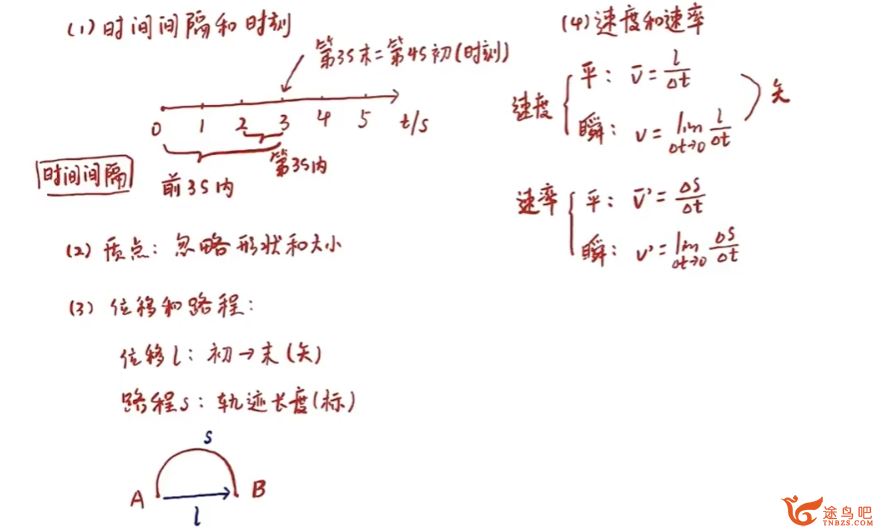 (1) 时间间隔和时刻
第3s末=第4s初(时刻)
0 1 2 3 4 5 t/s
前3s内
第3s内
时间间隔
(2) 质点: 忽略形状和大小
(3) 位移和路程:
位移l: 初→末(矢)
路程s: 轨迹长度(标)
s
A B
l
(4) 速度和速率
速度
平: v̄ = l/Δt
瞬: v = lim Δt→0 l/Δt
矢
速率
平: v̄' = Δs/Δt
瞬: v' = lim Δt→0 Δs/Δt
途鸟吧
TNBZS.COM